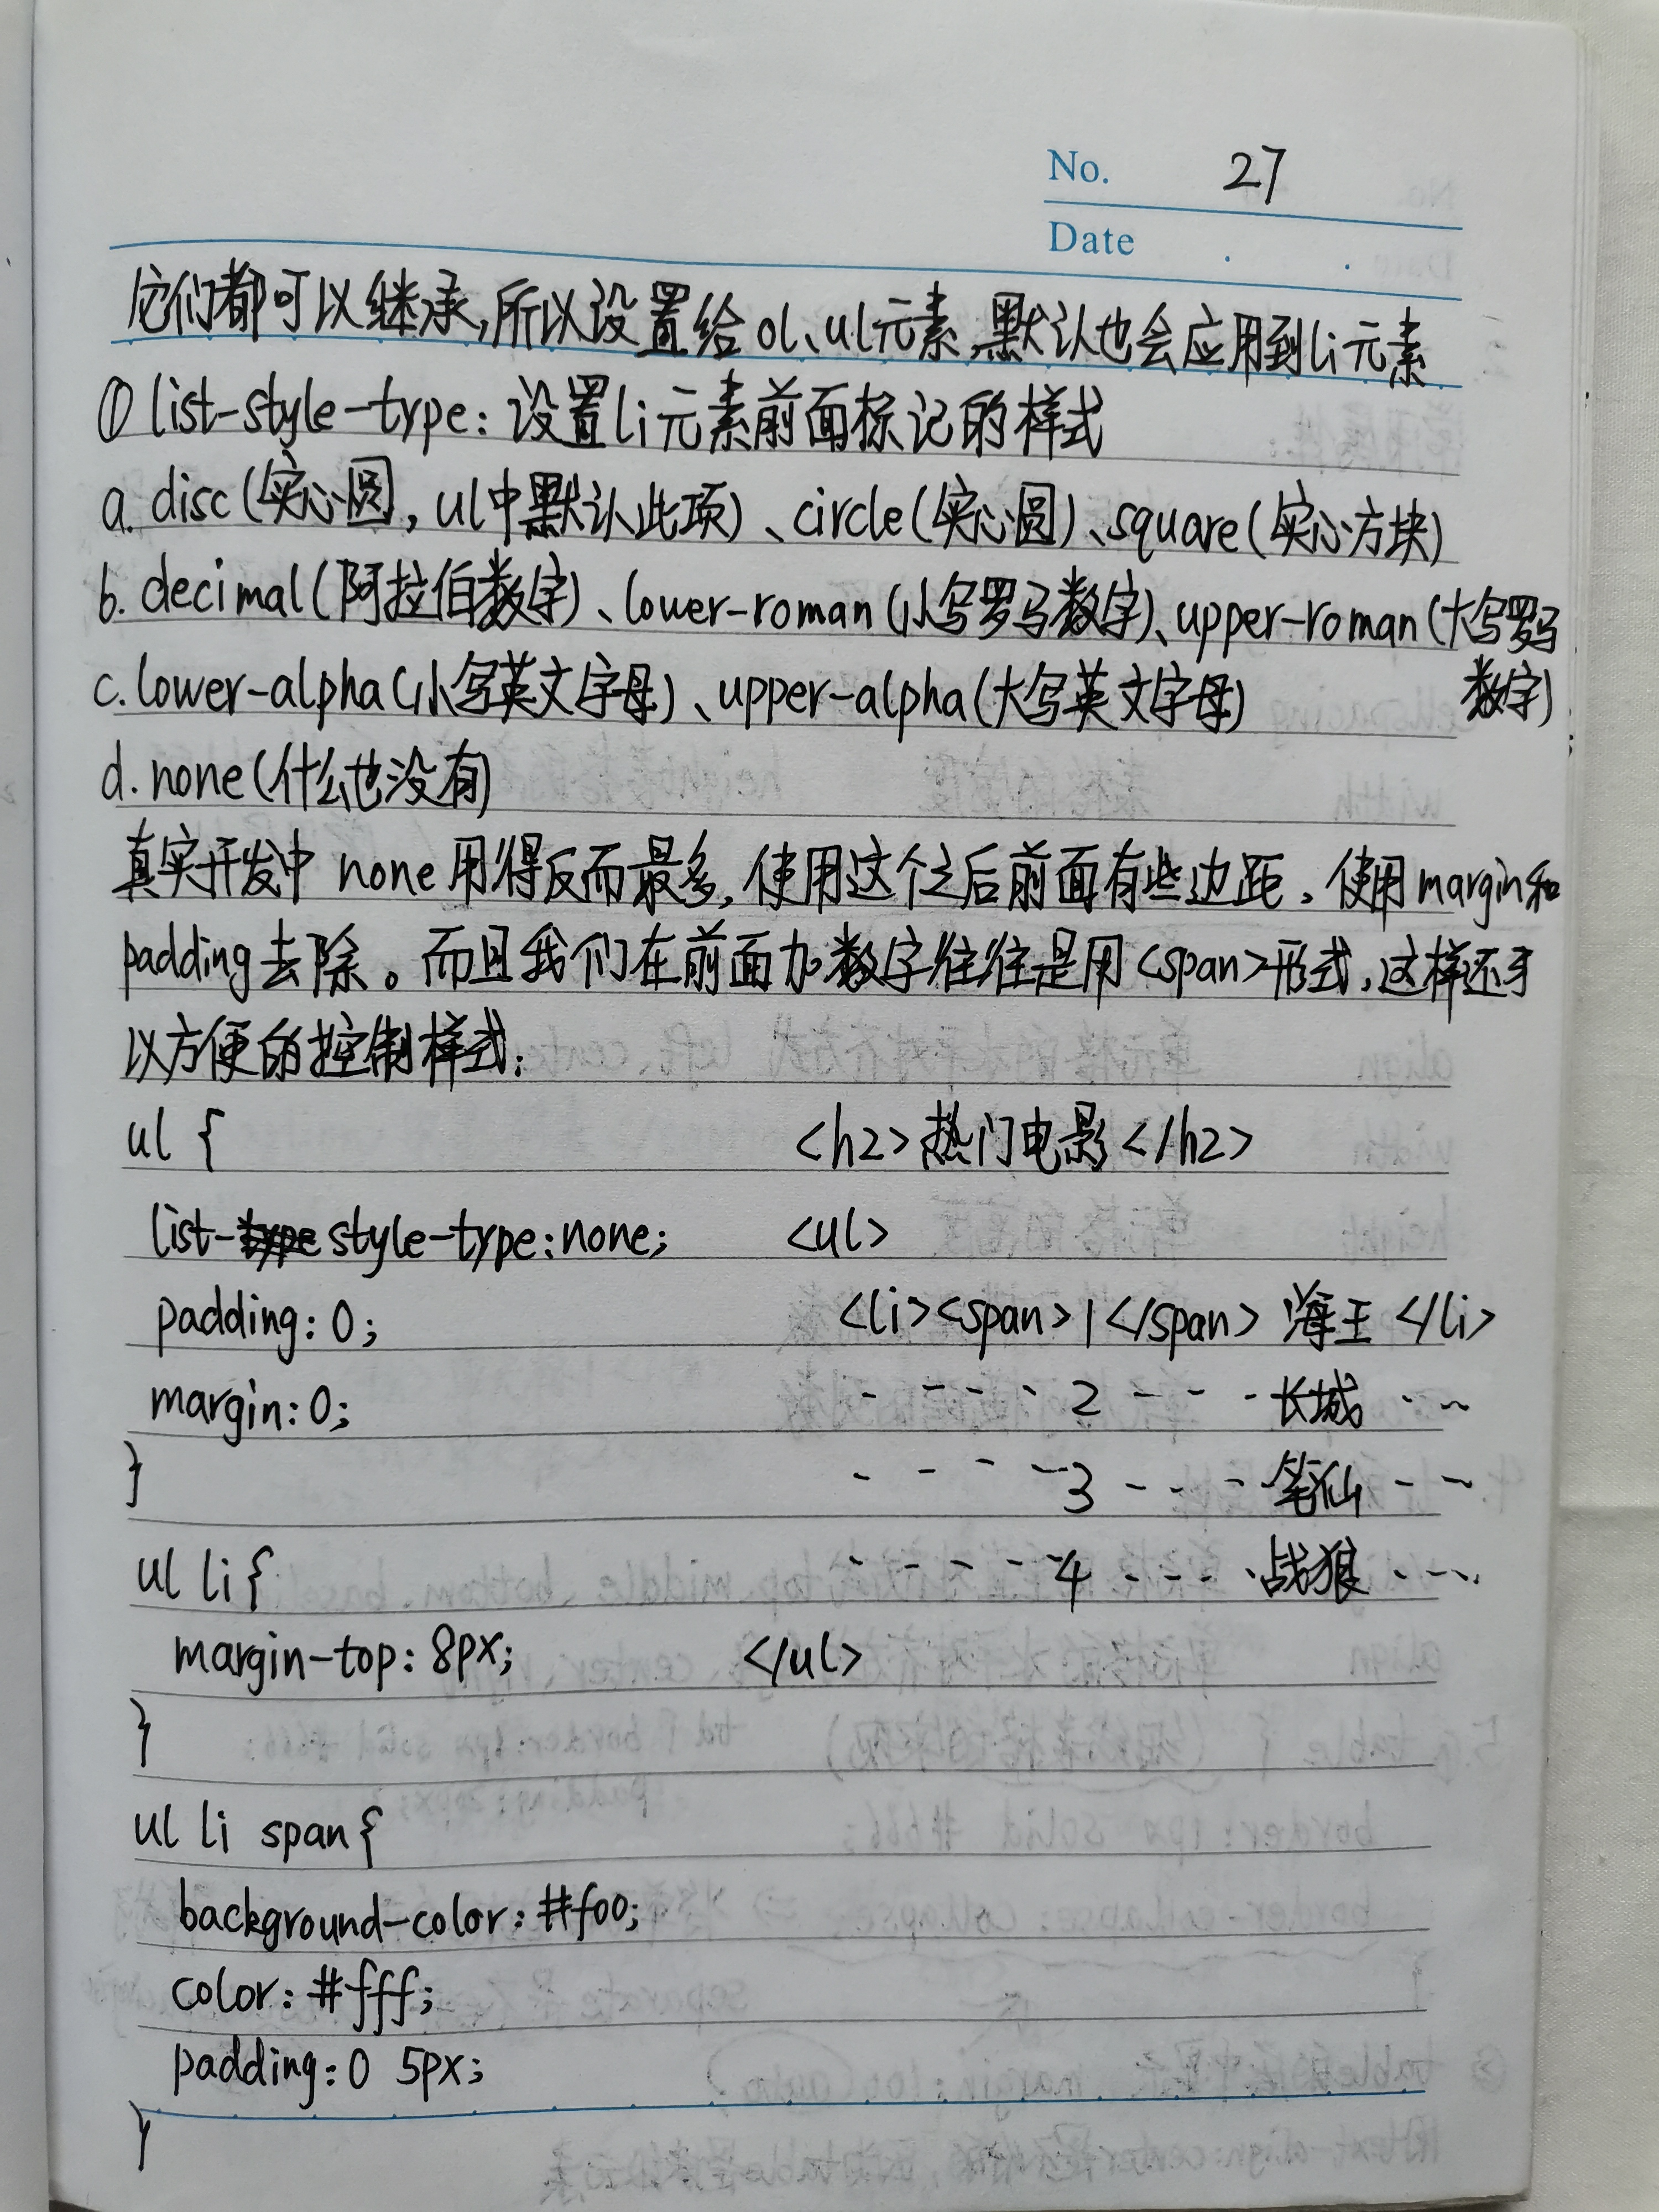 No. 27
Date . .
它们都可以继承,所以设置给ol、ul元素,默认也会应用到li元素
① list-style-type: 设置li元素前面标记的样式
a. disc(实心圆, ul中默认此项)、circle(实心圆)、square(实心方块)
b. decimal(阿拉伯数字)、lower-roman(小写罗马数字)、upper-roman(大写罗马
数字)
c. lower-alpha(小写英文字母)、upper-alpha(大写英文字母)
d. none(什么也没有)
真实开发中 none 用得反而最多, 使用这个之后前面有些边距。使用margin和
padding去除。而且我们在前面加数字往往是用<span>形式,这样还可
以方便的控制样式:
ul { <h2>热门电影</h2>
list-style-type:none; <ul>
padding: 0; <li><span>1</span>海王</li>
margin: 0; - - - - 2 - - - 长城 - - ~
} - - - - 3 - - - 笔仙 - - ~
ul li { - - - - 4 - - - 战狼 - - -
margin-top: 8px; </ul>
}
ul li span {
background-color: #f00;
color: #fff;
padding: 0 5px;
}